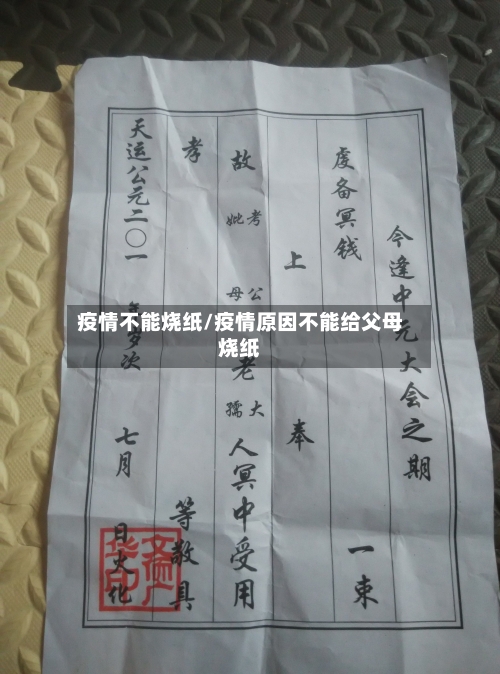 今逢中元大会之期
虔备冥钱 一束
上 奉
故
考 妣
公 母
老
大 孺
人冥中受用
孝 等敬具
天运公元二〇一 年 岁次 七月 日火化
疫情不能烧纸/疫情原因不能给父母
烧纸